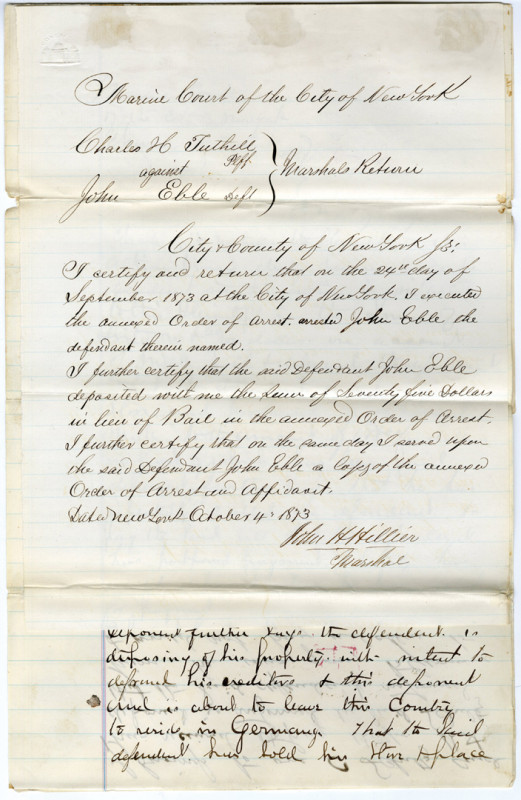 Marine Court of the City of New York
Charles H Tuthill
Plff
against
John Eble Deft
Marshals Return
City & County of New York Ss:
I certify and return that on the 24th day of
September 1873 at the City of New York. I executed
the annexed Order of Arrest. arrested John Eble the
defendant therein named.
I further certify that the said Defendant John Eble
deposited with me the Sum of Seventy five Dollars
in lieu of Bail in the annexed Order of Arrest.
I further certify that on the same day I served upon
the said Defendant John Eble a Copy of the annexed
Order of Arrest and Affidavit.
Dated New York October 4th 1873
John H Hillier
Marshal
deponent further says the defendant is
disposing of his property with intent to
defraud his creditors & this deponent
and is about to leave this Country
to reside in Germany That the said
defendant has sold his place